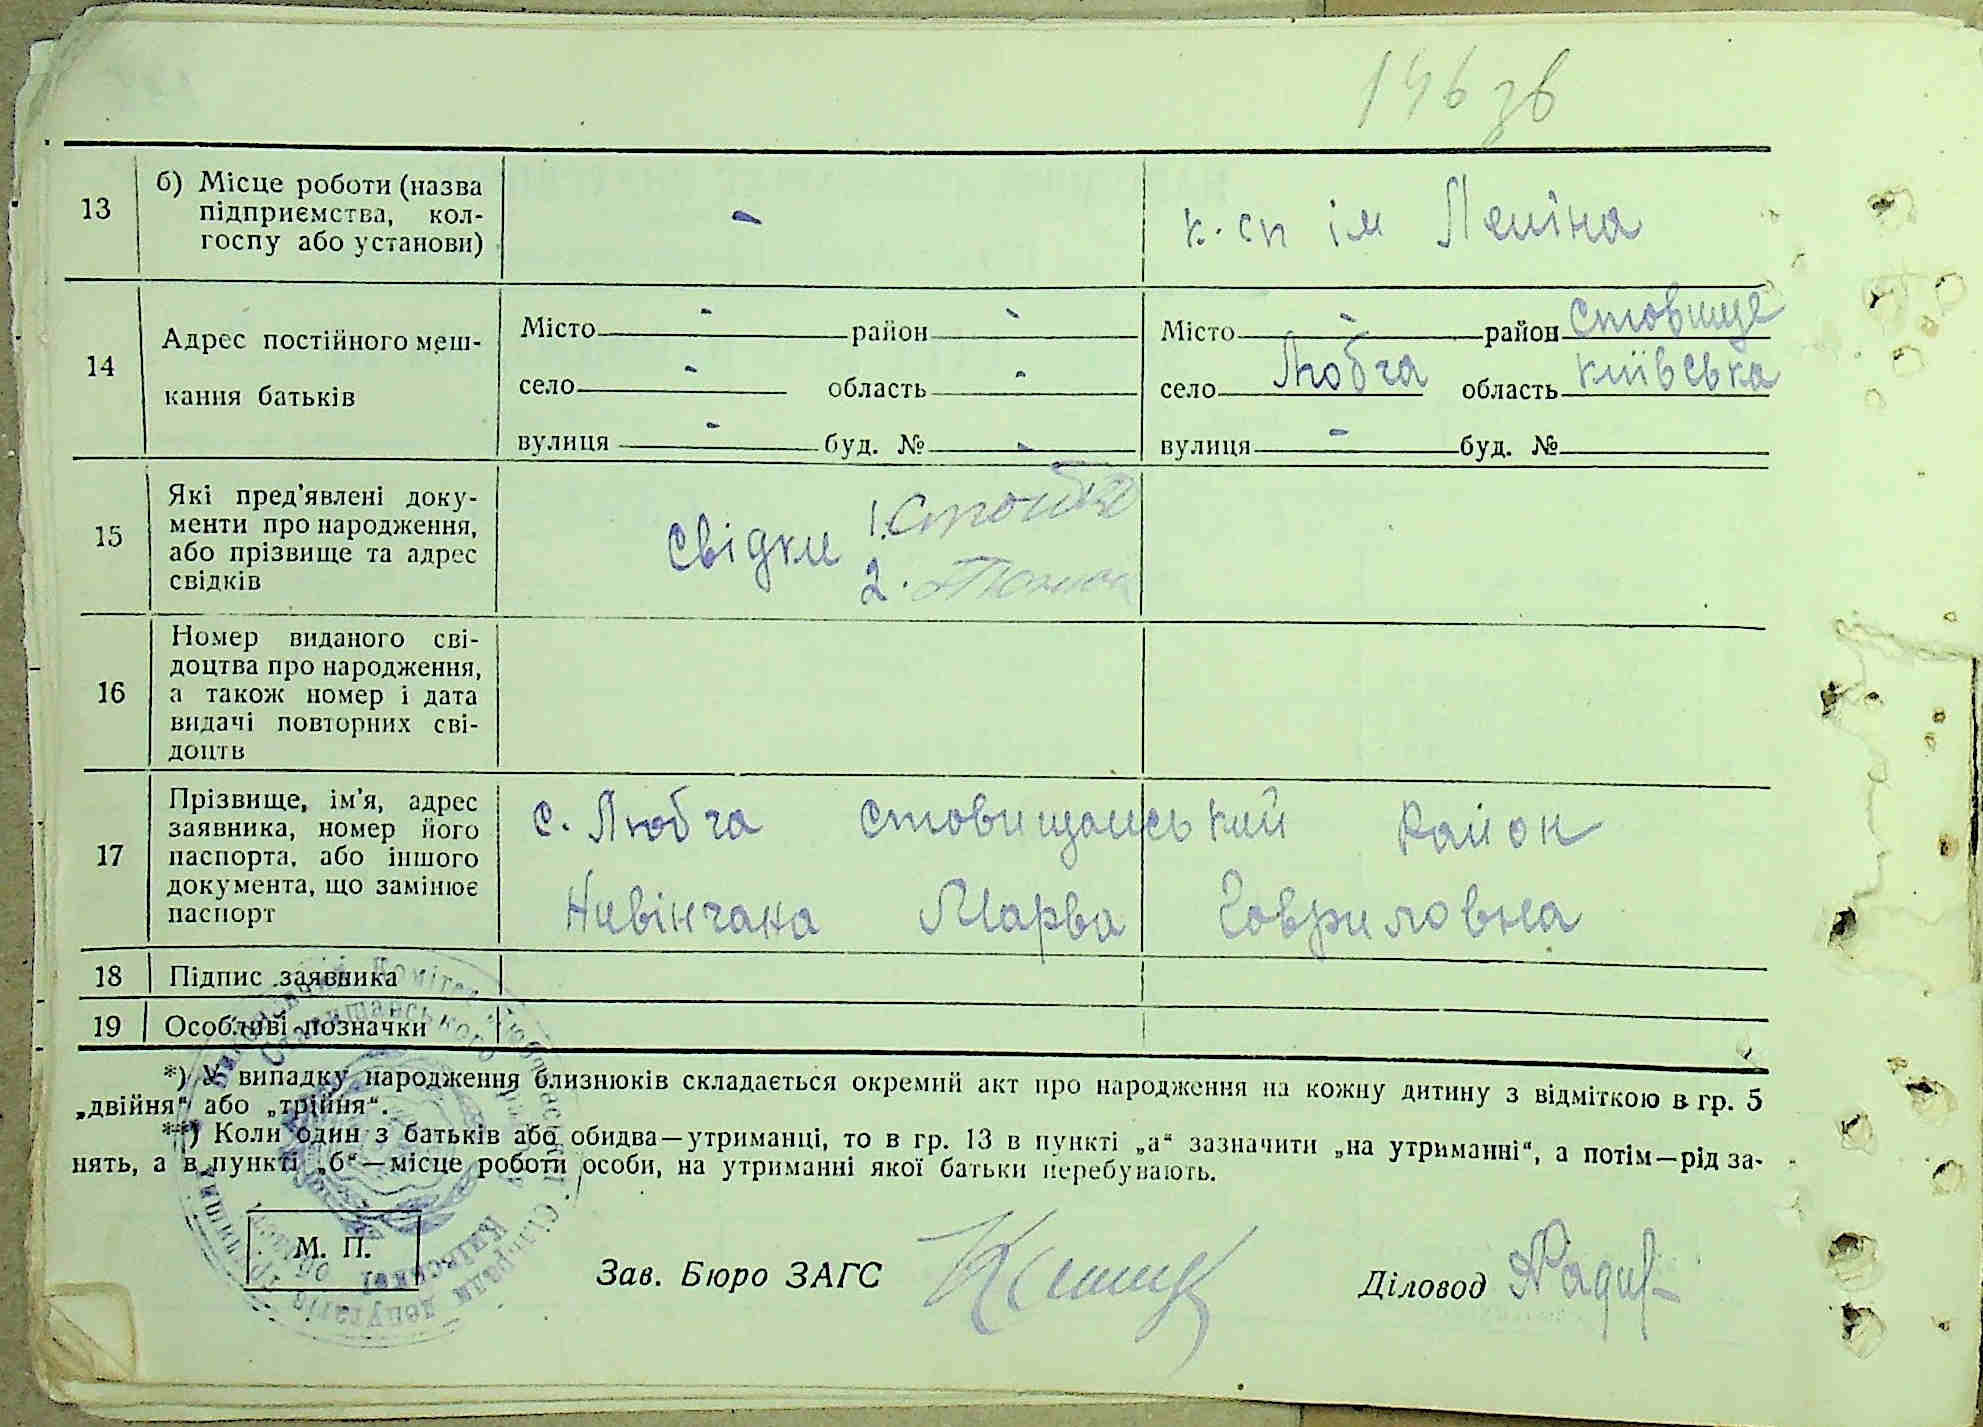 146 зв
13
б) Місце роботи (назва
підприємства, кол-
госпу або установи)
-
к.сп ім Леніна
14
Адрес постійного меш-
кання батьків
Місто - район -
село - область -
вулиця - буд. № -
Місто - район Ставище
село Любча область київська
вулиця - буд. №
15
Які пред'явлені доку-
менти про народження,
або прізвище та адрес
свідків
свідки 1.
2.
16
Номер виданого сві-
доцтва про народження,
а також номер і дата
видачі повторних сві-
доцтв
17
Прізвище, ім'я, адрес
заявника, номер його
паспорта, або іншого
документа, що замінює
паспорт
с. Любча Ставищанський Район
Нивінчана Марва Гавриловна
18
Підпис заявника
19
Особливі позначки
*) У випадку народження близнюків складається окремий акт про народження на кожну дитину з відміткою в гр. 5
„двійня“ або „трійня“.
**) Коли один з батьків або обидва—утриманці, то в гр. 13 в пункті „а“ зазначити „на утриманні“, а потім—рід за-
нять, а в пункті „б“—місце роботи особи, на утриманні якої батьки перебувають.
М. П.
Зав. Бюро ЗАГС
Діловод